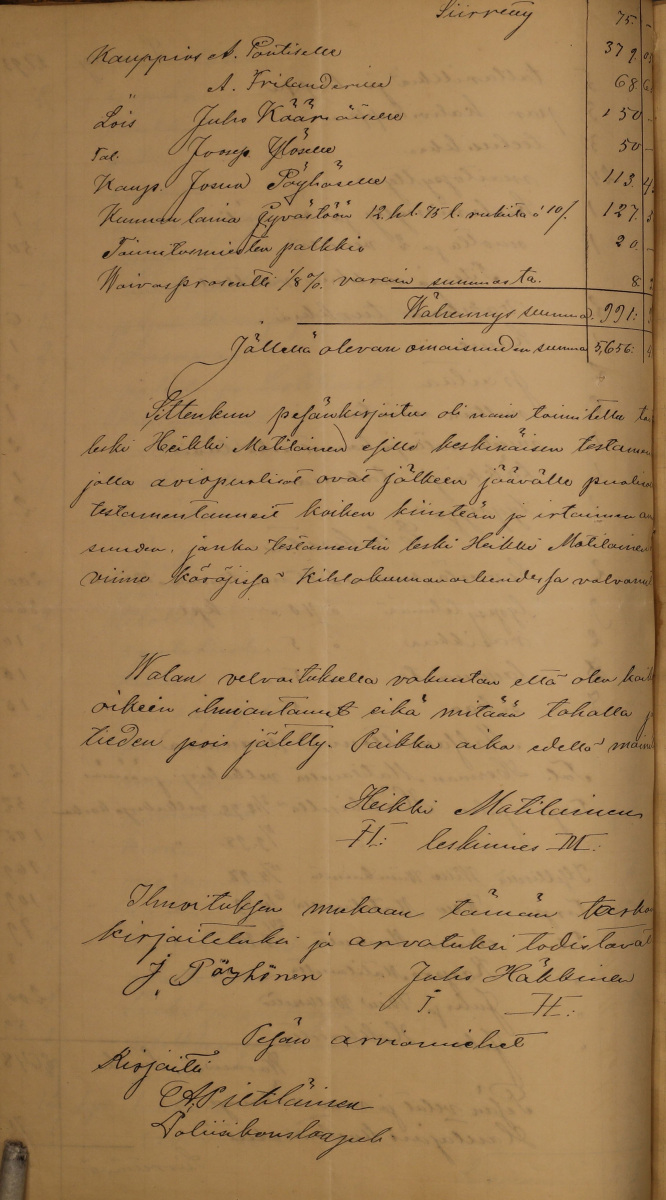 Siirretty 75. –
Kauppias A. Pöntiselle 379.
" A. Frilanderille 68.
Lois Juho Kääriäiselle 150 –
Tal. Joosep Ylöselle 50 –
Kaup. Josua Pöyhöselle 113.
Kunnan laina Jyvästöön 12. hl. 75 l. rukiita á 10/. 127.
Toimitusmiesten palkkio 20. –
Waivasprosentti 1/8 %. varain summasta. 8.
Wähennys summa. 991:
Jällellä olevan omaisuuden summa 5,656.
Sittenkun pesänkirjoitus oli näin toimitettu
leski Heikki Matilainen esille keskinäisen testamen
jolla aviopuolisot ovat jälkeen jäävälle puoliso
testamentanneet kaiken kiinteän ja irtaimen
suuden, jonka testamentin leski Heikki Matilainen
viime käräjissä Kihlakunnanoikeudessa valvonut
Walan velvoituksella vakuutan että olen kaik
oikein ilmiantanut eikä mitään tahalla
tieden pois jätetty. Paikka aika edellä main
Heikki Matilainen
H: leskimies M:
Ilmoituksen mukaan tämän
kirjoitetuksi ja arvatuksi todistavat
J. Pöyhönen Juho Häkkinen
J. H:
Pesän arviomiehet
Kirjoitti
A. Pietiläinen
Poliisikonstaapeli